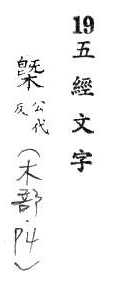 19 五經文字
槩 公代反 (木部.P4)